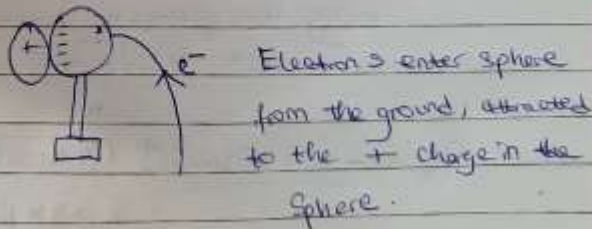 +
e⁻
Electrons enter sphere
from the ground, attracted
to the + chage in the
Sphere.